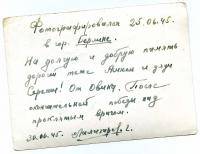 Фотографировался 25.06.45.
в гор. Берлине.
На долгую и добрую память
дорогой тёте и дяде
Сереже! От После
окончательной победы над
проклятым врагом.
30.06.45.